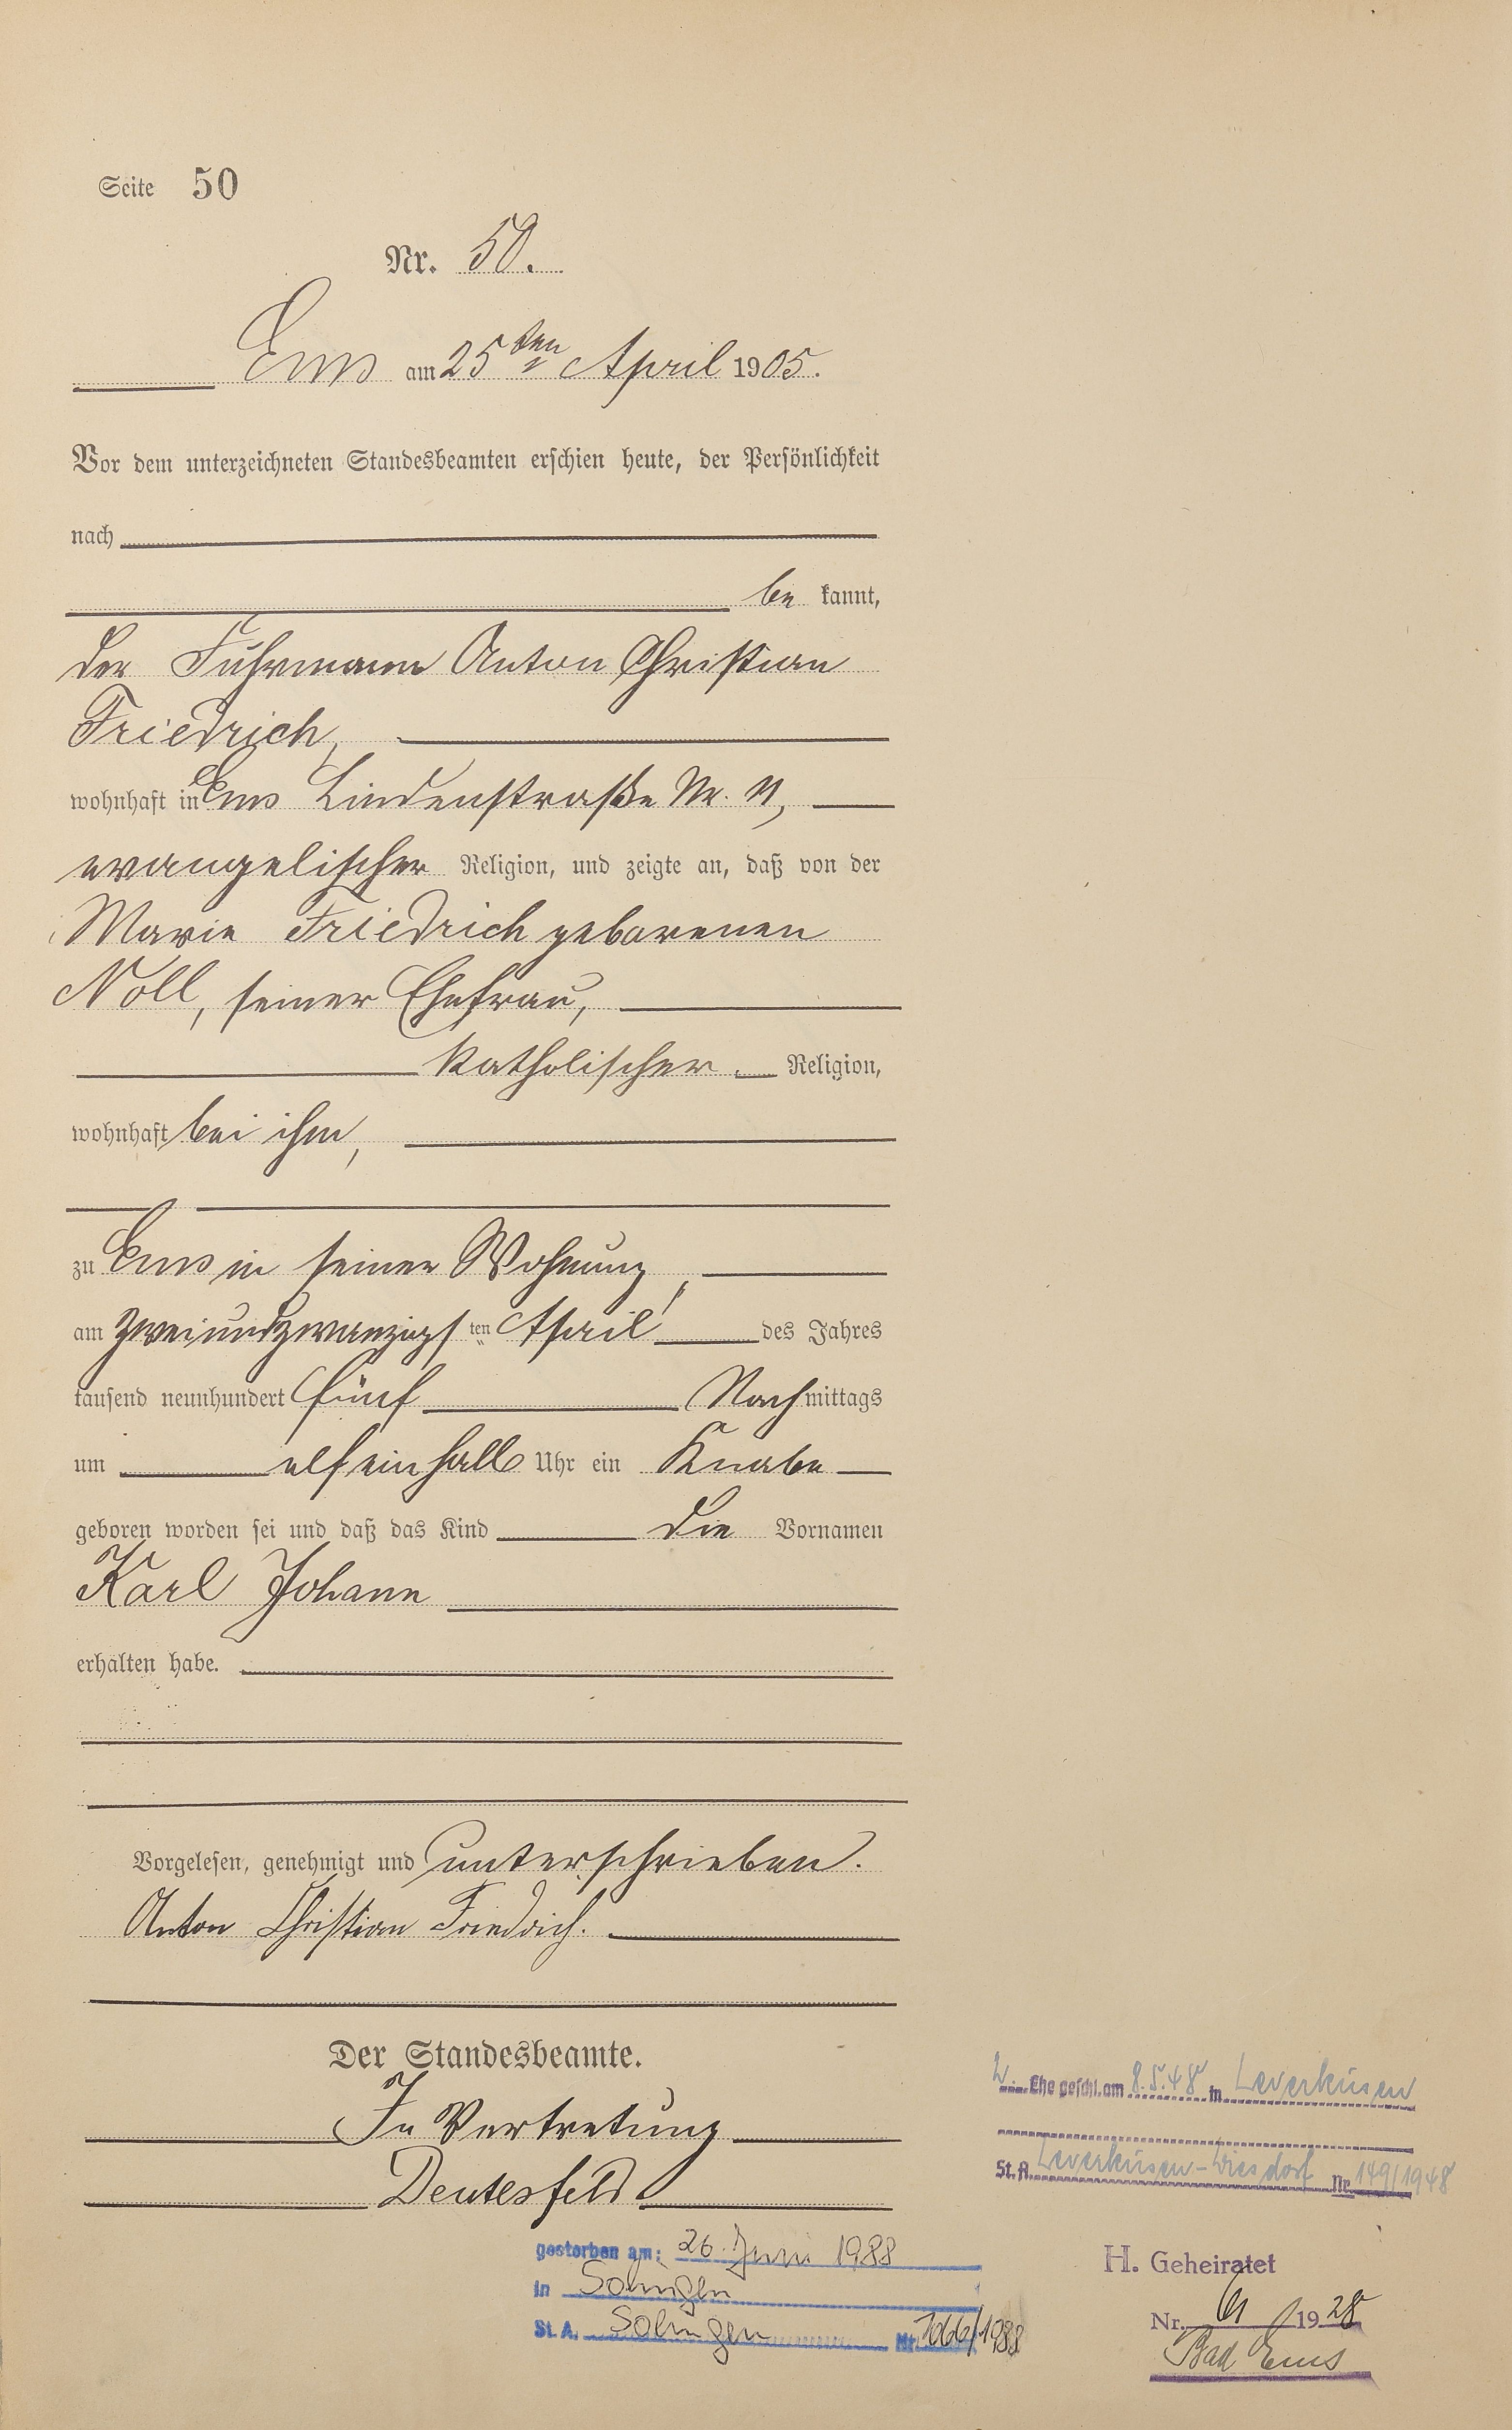 Seite 50
Nr. 50.
Ems am 25ten April 1905.
Vor dem unterzeichneten Standesbeamten erschien heute, der Persönlichkeit
nach
be kannt,
der Fuhrmann Anton Christian
Friedrich,
wohnhaft in Ems Lindenstraße Nr. 11,
evangelischer Religion, und zeigte an, daß von der
Marie Friedrich geborenen
Noll, seiner Ehefrau,
katholischer Religion,
wohnhaft bei ihm,
zu Ems in seiner Wohnung,
am zweiundzwanzigsten April des Jahres
tausend neunhundert fünf Nachmittags
um elfeinhalb Uhr ein Knabe
geboren worden sei und daß das Kind die Vornamen
Karl Johann
erhalten habe.
Vorgelesen, genehmigt und unterschrieben.
Anton Christian Friedrich.
Der Standesbeamte.
In Vertretung
Deutesfeld
gestorben am: 26. Juni 1988
in Solingen
St. A. Solingen Nr. 1066/1988
2. Ehe geschl. am 8.5.48 in Leverkusen
St. A. Leverkusen-Wiesdorf Nr. 149/1948
H. Geheiratet
Nr. 61 / 1928
Bad Ems